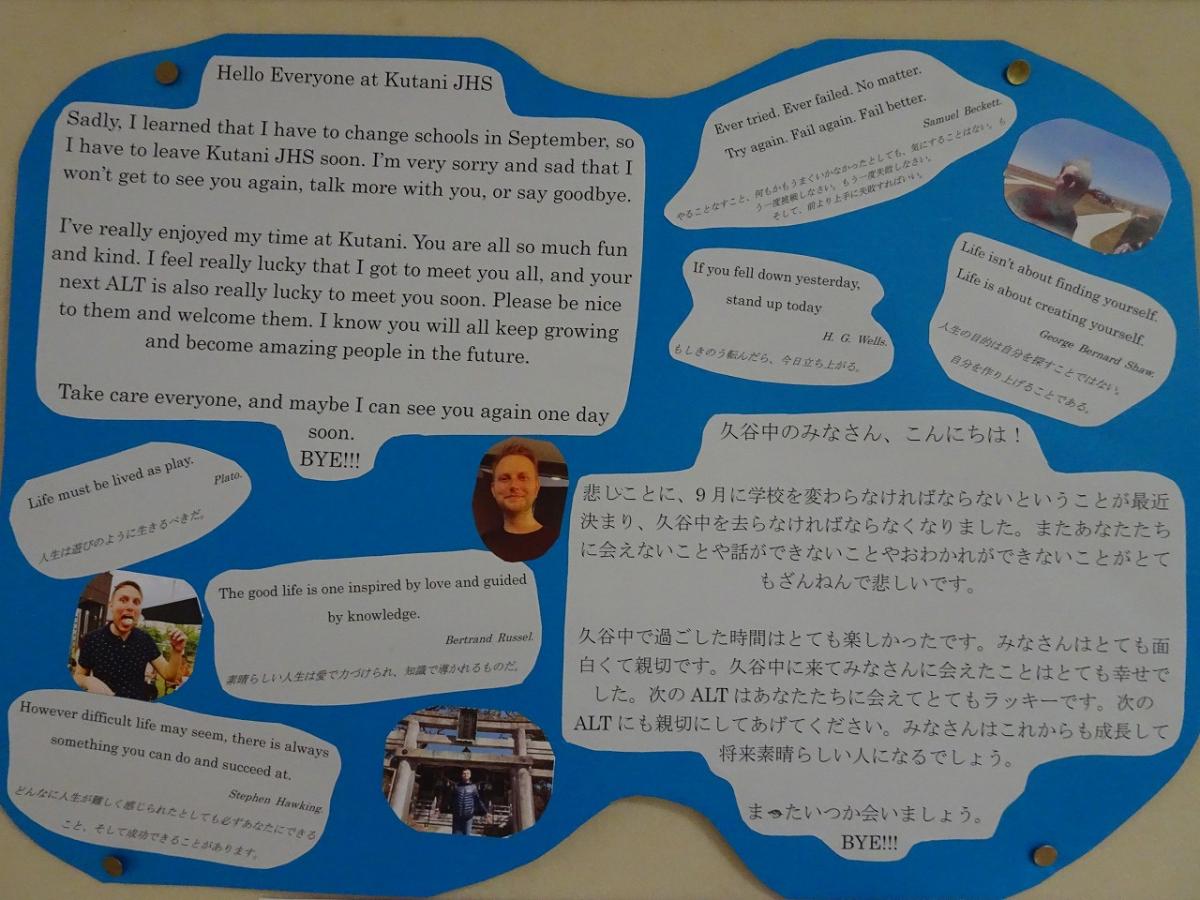 Hello Everyone at Kutani JHS
Sadly, I learned that I have to change schools in September, so
I have to leave Kutani JHS soon. I'm very sorry and sad that I
won't get to see you again, talk more with you, or say goodbye.
I've really enjoyed my time at Kutani. You are all so much fun
and kind. I feel really lucky that I got to meet you all, and your
next ALT is also really lucky to meet you soon. Please be nice
to them and welcome them. I know you will all keep growing
and become amazing people in the future.
Take care everyone, and maybe I can see you again one day
soon.
BYE!!!
Ever tried. Ever failed. No matter.
Try again. Fail again. Fail better.
Samuel Beckett.
やることなすこと、何もかもうまくいかなかったとしても、気にすることはない。も
う一度挑戦しなさい。もう一度失敗しなさい。
そして、前より上手に失敗すればいい。
If you fell down yesterday,
stand up today
H. G. Wells.
もしきのう転んだら、今日立ち上がる。
Life isn't about finding yourself.
Life is about creating yourself.
George Bernard Shaw.
人生の目的は自分を探すことではない。
自分を作り上げることである。
Life must be lived as play.
Plato.
人生は遊びのように生きるべきだ。
The good life is one inspired by love and guided
by knowledge.
Bertrand Russel.
素晴らしい人生は愛で力づけられ、知識で導かれるものだ。
However difficult life may seem, there is always
something you can do and succeed at.
Stephen Hawking.
どんなに人生が難しく感じられたとしても必ずあなたにできる
こと、そして成功できることがあります。
久谷中のみなさん、こんにちは！
悲しことに、9月に学校を変わらなければならないということが最近
決まり、久谷中を去らなければならなくなりました。またあなたたち
に会えないことや話ができないことやおわかれができないことがとて
もざんねんで悲しいです。
久谷中で過ごした時間はとても楽しかったです。みなさんはとても面
白くて親切です。久谷中に来てみなさんに会えたことはとても幸せで
した。次の ALT はあなたたちに会えてとてもラッキーです。次の
ALT にも親切にしてあげてください。みなさんはこれからも成長して
将来素晴らしい人になるでしょう。
まったいつか会いましょう。
BYE!!!